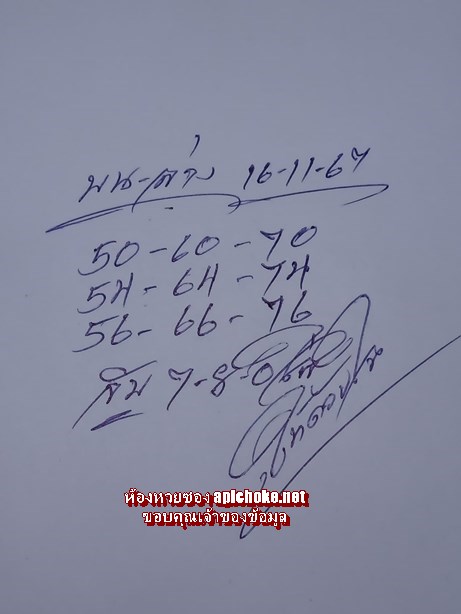 บน-ล่าง 16-11-67
50-60-70
54-64-74
56-66-76
7-8-0
ห้องหวยซอง apichoke.net
ขอบคุณเจ้าของข้อมูล